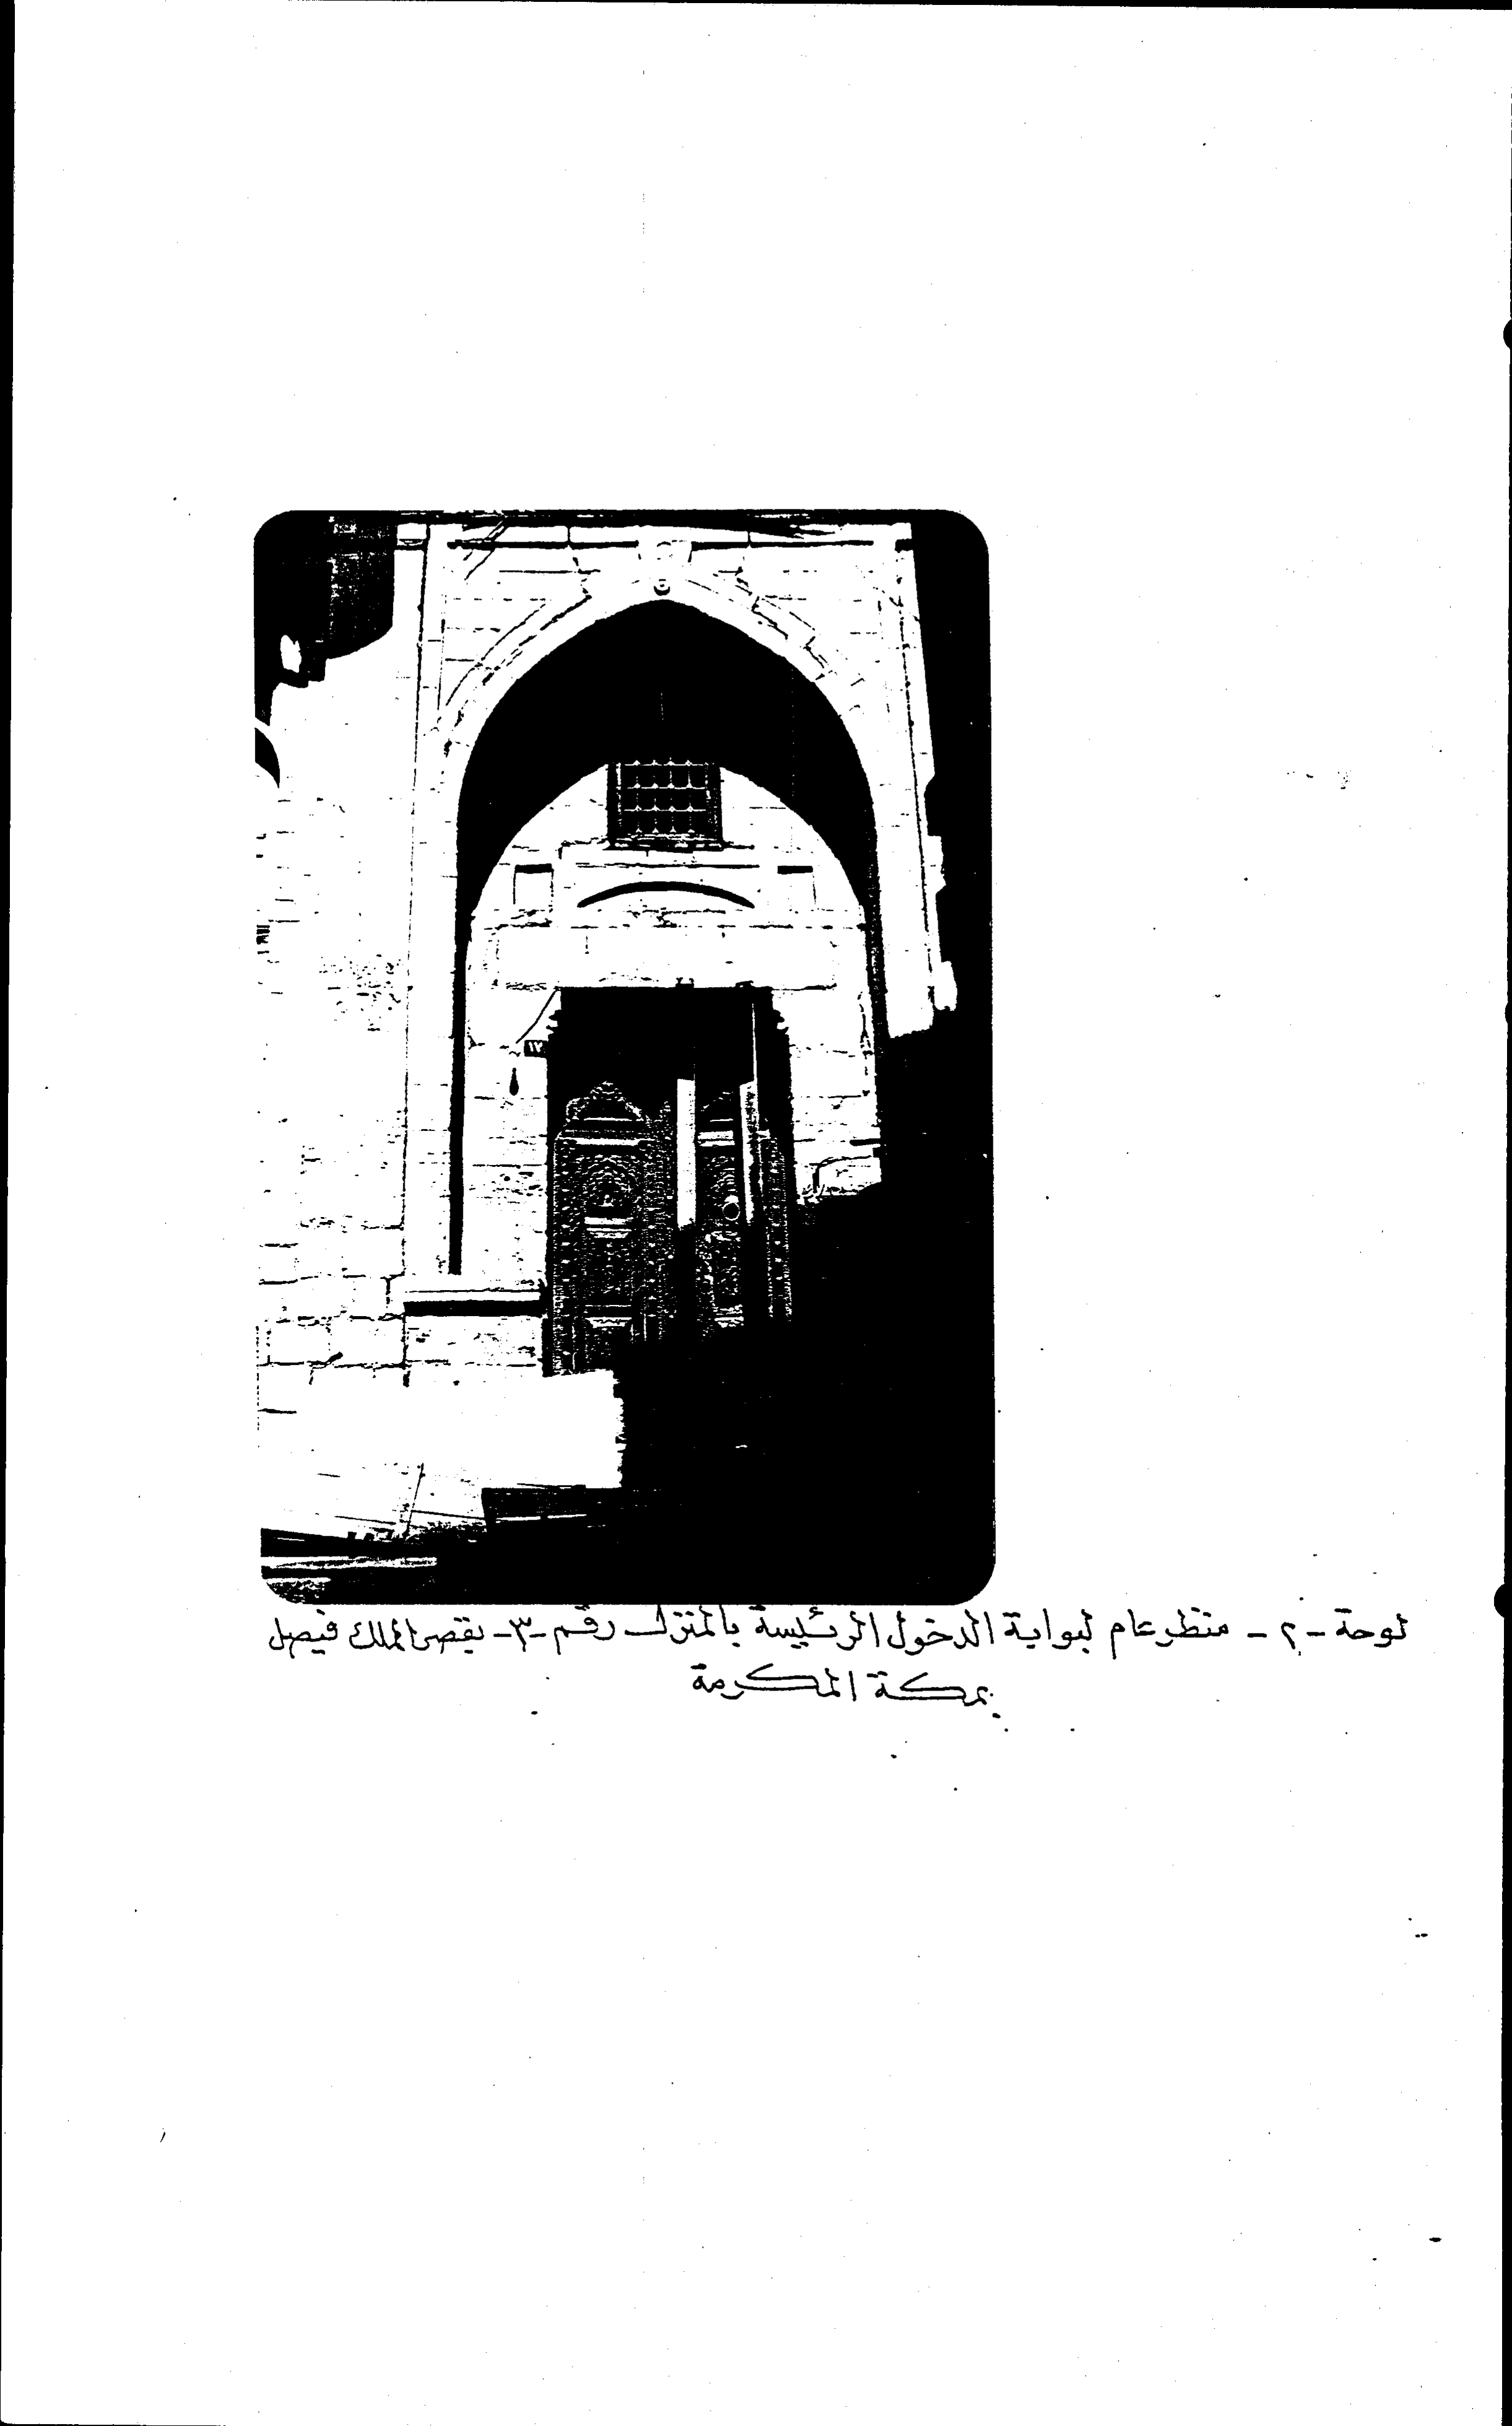 ١٧
لوحة -٢- منظر عام لبوابة الدخول الرئيسة بالمنزل رقم -٣- بقصر الملك فيصل
بمكة المكرمة